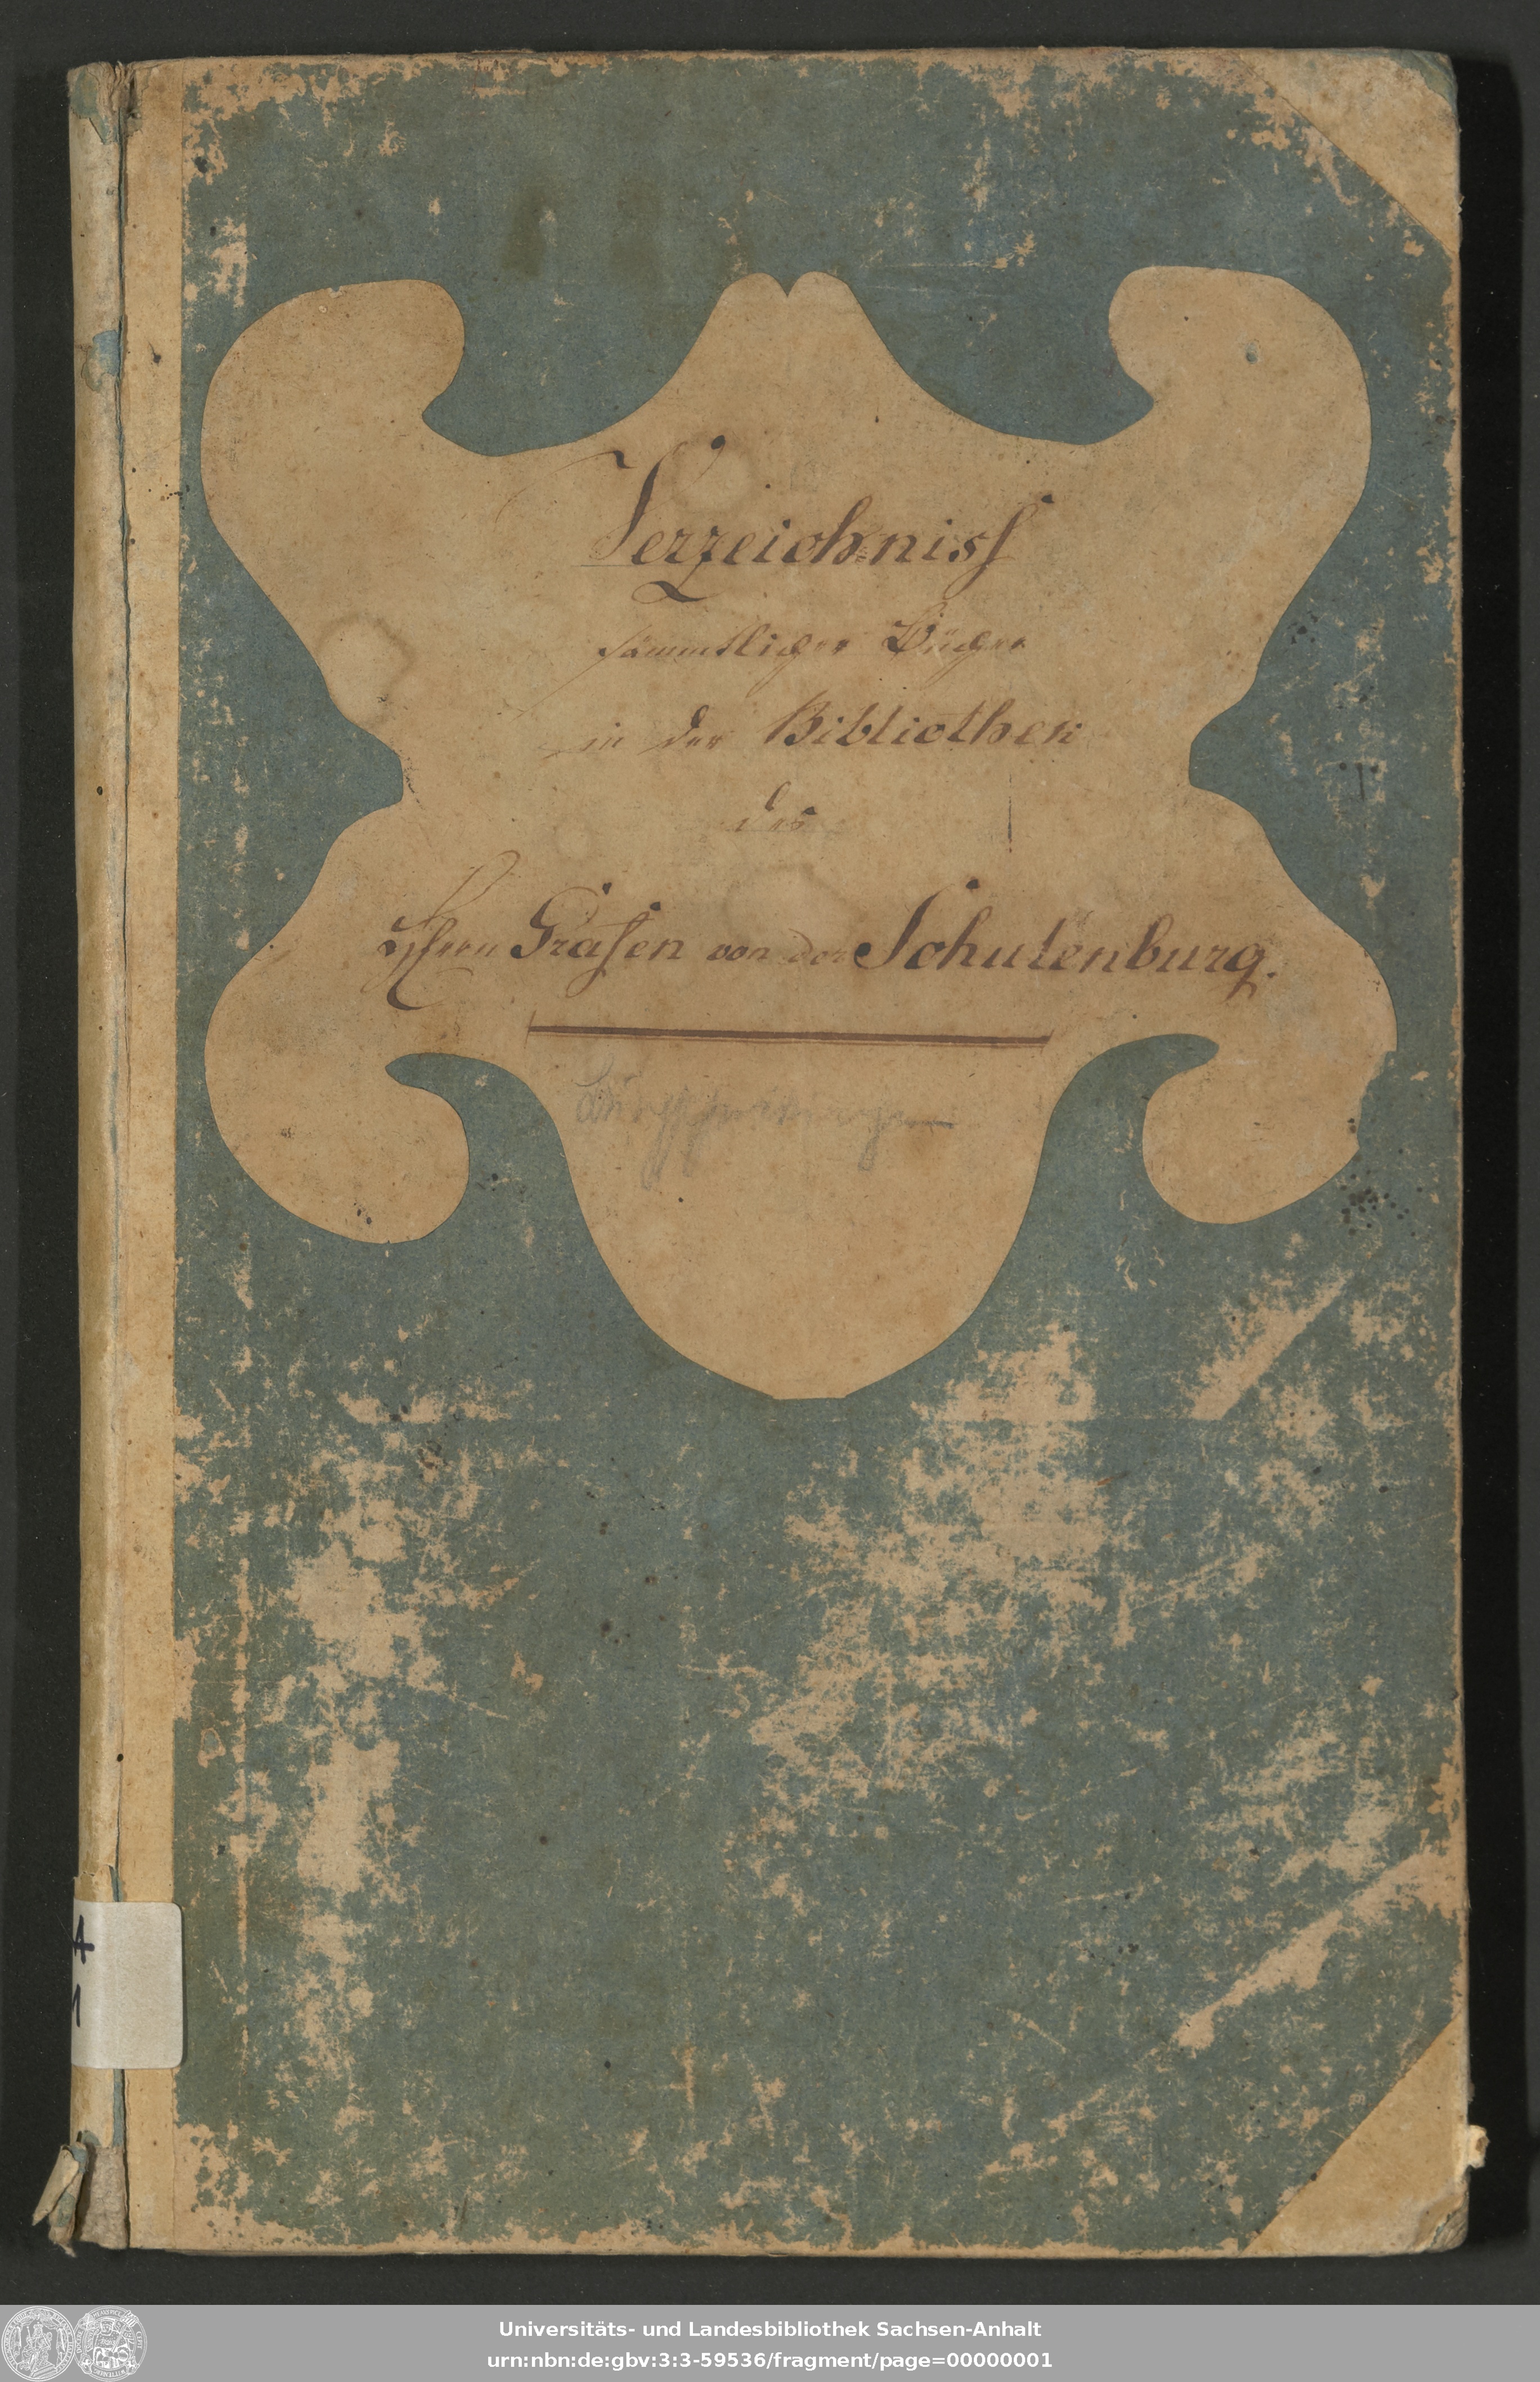 Verzeichniss
sämmtlicher Bücher
in der Bibliothek
des
Herrn Grafen von der Schulenburg.
A
1
Universitäts- und Landesbibliothek Sachsen-Anhalt
urn:nbn:de:gbv:3:3-59536/fragment/page=00000001